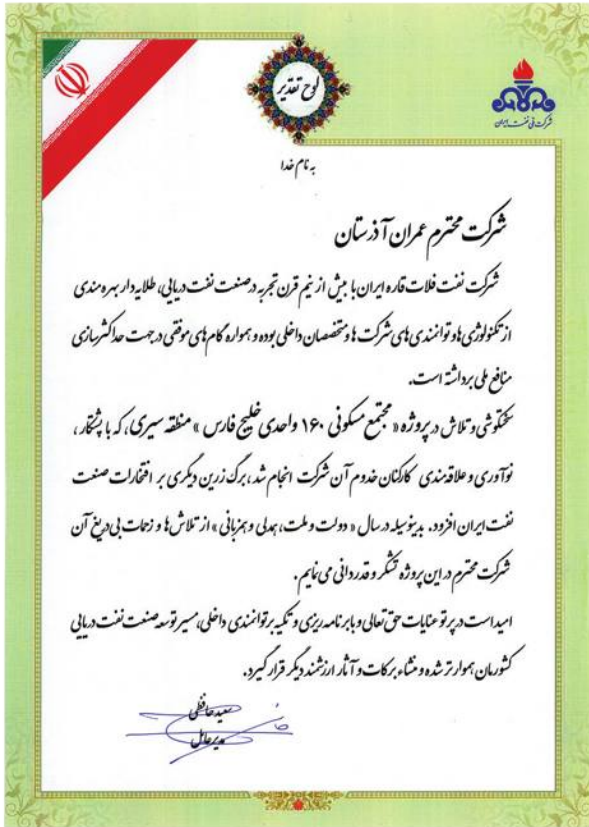 لوح تقدیر
شرکت ملی نفت ایران
به نام خدا
شرکت محترم عمران آذرستان
شرکت نفت فلات قاره ایران با بیش از نیم قرن تجربه در صنعت نفت دریایی، طلایه دار بهره مندی
از تکنولوژی ها و توانمندی های شرکت ها و متخصصان داخلی بوده و همواره گام های موفقی در جهت حداکثرسازی
منافع ملی برداشته است.
سختکوشی و تلاش در پروژه « مجتمع مسکونی ۱۶۰ واحدی خلیج فارس » منطقه سیری، که با پشتکار ،
نوآوری و علاقه مندی کارکنان خدوم آن شرکت انجام شد، برگ زرین دیگری بر افتخارات صنعت
نفت ایران افزود. بدینوسیله در سال « دولت و ملت، همدلی و همزبانی » از تلاش ها و زحمات بی دریغ آن
شرکت محترم در این پروژه تشکر و قدردانی می نمایم .
امید است در پرتو عنایات حق تعالی و با برنامه ریزی و تکیه بر توانمندی داخلی، مسیر توسعه صنعت نفت دریایی
کشورمان هموارتر شده و منشاء برکات و آثار ارزشمند دیگر قرار گیرد.
سعید حافظی
مدیرعامل